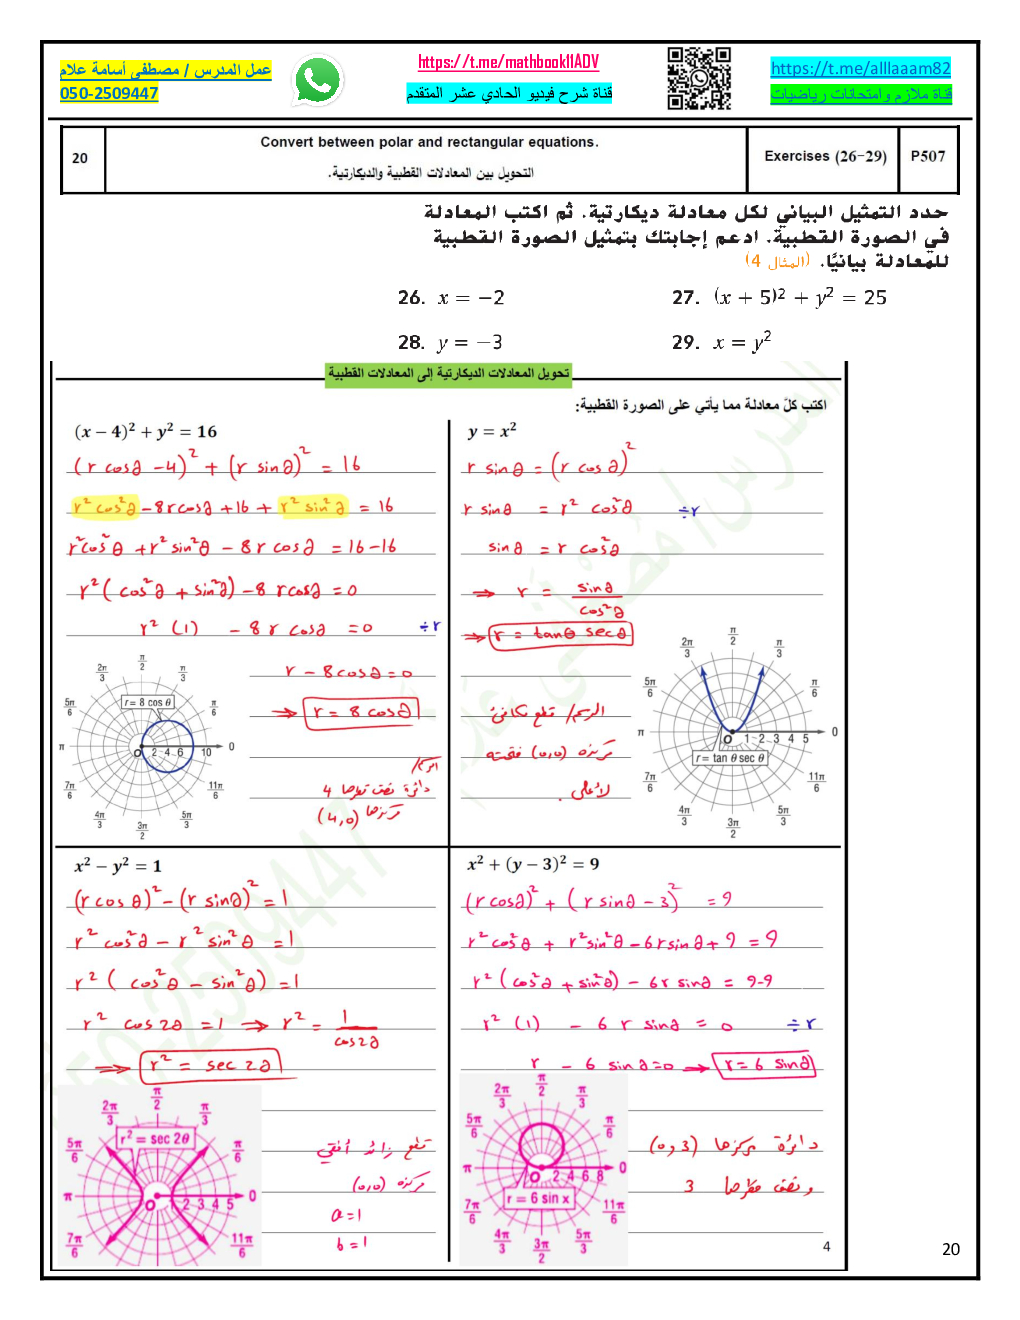 عمل المدرس / مصطفى أسامة علام
050-2509447
https://t.me/mathbook11ADV
قناة شرح فيديو الحادي عشر المتقدم
https://t.me/alllaaam82
قناة ملازم وامتحانات رياضيات
20
Convert between polar and rectangular equations.
التحويل بين المعادلات القطبية والديكارتية.
Exercises (26-29)
P507
حدد التمثيل البياني لكل معادلة ديكارتية. ثم اكتب المعادلة
في الصورة القطبية. ادعم إجابتك بتمثيل الصورة القطبية
للمعادلة بيانيًا. (المثال 4)
26. x = −2
27. (x + 5)² + y² = 25
28. y = −3
29. x = y²
تحويل المعادلات الديكارتية إلى المعادلات القطبية
اكتب كلّ معادلة مما يأتي على الصورة القطبية:
(x − 4)² + y² = 16
(r cosθ − 4)² + (r sinθ)² = 16
r² cos²θ − 8r cosθ + 16 + r² sin²θ = 16
r² cos²θ + r² sin²θ − 8 r cosθ = 16 − 16
r² (cos²θ + sin²θ) − 8 r cosθ = 0
r² (1) − 8 r cosθ = 0 ÷ r
r − 8 cosθ = 0
⇒ r = 8 cosθ
الرسم/
دائرة نصف قطرها 4
مركزها (4,0)
2π/3 π/2 π/3
5π/6 π/6
r = 8 cos θ
π O 2 4 6 10 0
7π/6 11π/6
4π/3 3π/2 5π/3
y = x²
r sinθ = (r cosθ)²
r sinθ = r² cos²θ ÷ r
sinθ = r cos²θ
⇒ r = sinθ / cos²θ
⇒ r = tanθ secθ
الرسم/ قطع مكافئ
مركزه (0,0) فتحته
لأعلى.
2π/3 π/2 π/3
5π/6 π/6
π O 1 2 3 4 5 0
r = tan θ sec θ
7π/6 11π/6
4π/3 3π/2 5π/3
x² − y² = 1
(r cosθ)² − (r sinθ)² = 1
r² cos²θ − r² sin²θ = 1
r² (cos²θ − sin²θ) = 1
r² cos2θ = 1 ⇒ r² = 1 / cos2θ
⇒ r² = sec 2θ
قطع زائد أفقي
مركزه (0,0)
a = 1
b = 1
2π/3 π/2 π/3
5π/6 π/6
r² = sec 2θ
π O 2 3 4 5 0
7π/6 11π/6
x² + (y − 3)² = 9
(r cosθ)² + (r sinθ − 3)² = 9
r² cos²θ + r² sin²θ − 6r sinθ + 9 = 9
r² (cos²θ + sin²θ) − 6r sinθ = 9-9
r² (1) − 6 r sinθ = 0 ÷ r
r − 6 sinθ = 0 → r = 6 sinθ
دائرة مركزها (0,3)
ونصف قطرها 3
2π/3 π/2 π/3
5π/6 π/6
π O 2 4 6 8 0
r = 6 sin x
7π/6 11π/6
4π/3 3π/2 5π/3
4
20
المدرس/ مصطفى علام
050-2509447